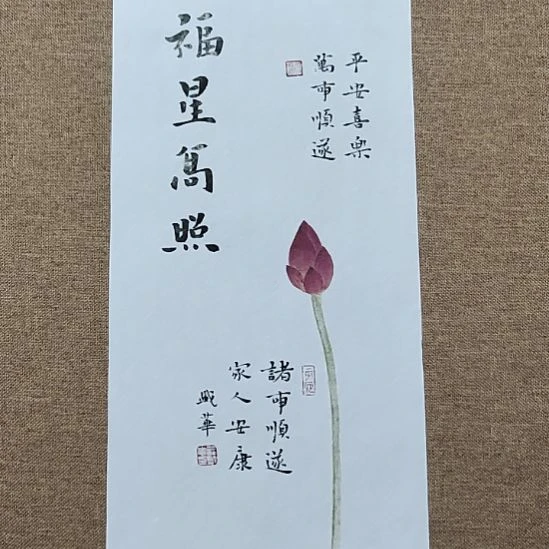 平安喜樂
萬事順遂
福星高照
諸事順遂
家人安康
華